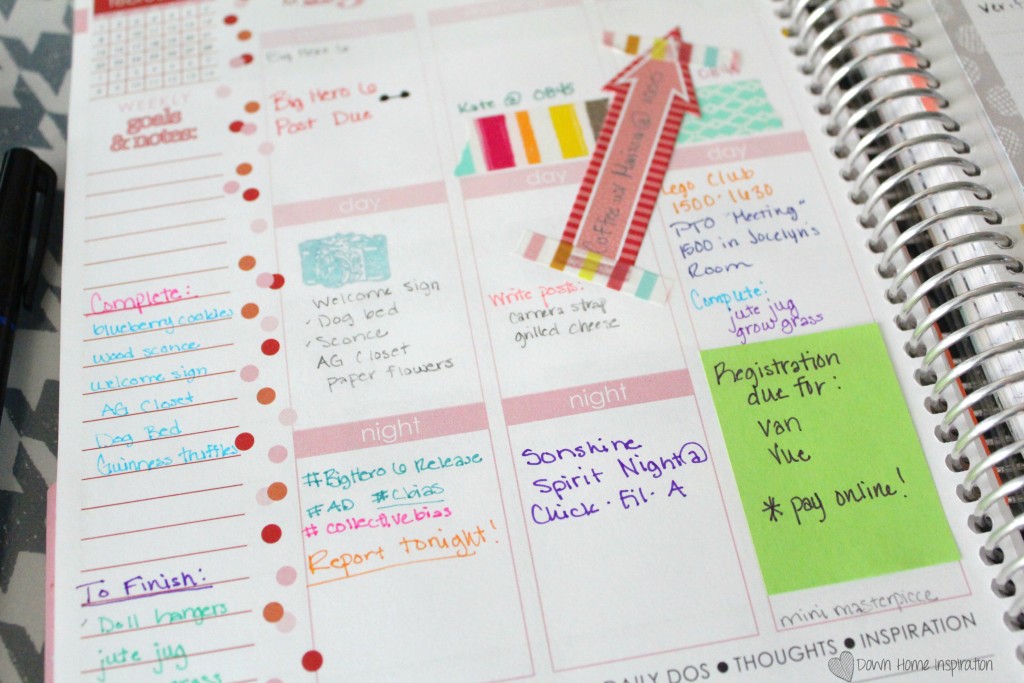 WEEKLY
goals
& notes:
Complete:
blueberry cookies
wood sconce
welcome sign
AG Closet
Dog Bed
Guinness truffles
To Finish:
Doll hangers
jute jug
grass
Big Hero 6
Big Hero 6
Post Due
day
Welcome sign
Dog bed
Sconce
AG Closet
paper flowers
night
#BigHero6 Release
#AD #cbias
#collectivebias
Report tonight!
Kate @ 0845
Coffee w/ @ 1000
day
Write posts:
camera strap
grilled cheese
night
Sonshine
Spirit Night @
Chick-Fil-A
day
Lego Club
1500-1630
PTO "Meeting"
1500 in Jocelyn's
Room
Complete:
jute jug
grow grass
Registration
due for:
Van
Vue
* pay online!
mini masterpiece
DAILY DOS • THOUGHTS • INSPIRATION
Down Home Inspiration